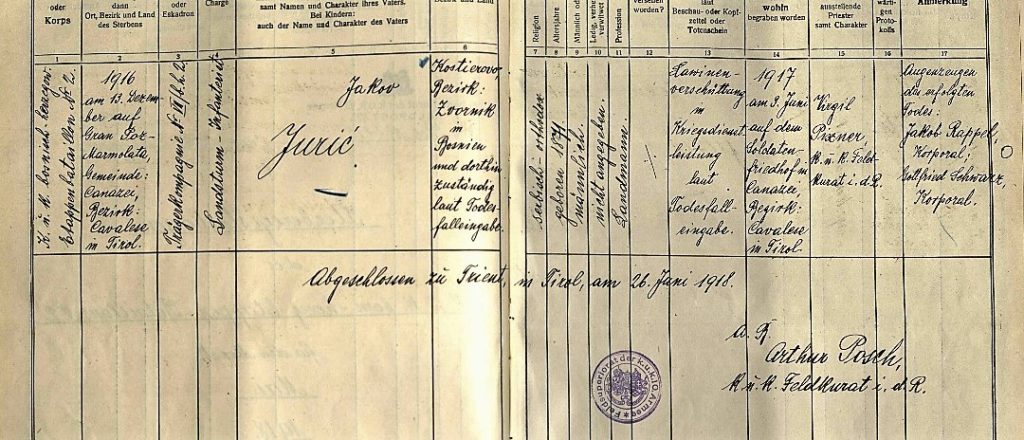 oder
Korps
dann
Ort, Bezirk und Land
des Sterbens
oder
Eskadron
Charge
samt Namen und Charakter ihres Vaters.
Bei Kindern:
auch der Name und Charakter des Vaters
Religion
Altersjahre
Männlich o
Ledig, verhe
verwitwet
Profession
versehen
worden?
ten
Beschau- oder Kopf-
zettel oder
Totenschein
wohin
begraben worden
ausstellende
Priester
samt Charakter
wär-
tigen
Proto-
kolls
Anmerkung
1
2
3
4
5
6
7
8
9
10
11
12
13
14
15
16
17
K. u. k. bosnisch-herzegow.
Etappenbataillon № 2.
1916
am 13. Dezem-
ber auf
Gran Poz-
Marmolata,
Gemeinde:
Canazei,
Bezirk:
Cavalese
in Tirol.
Trägerkompagnie № IV/b.h.2.
Landsturm-Infanterist
Jakov
Jurić.
Kostierovo,
Bezirk:
Zvornik
in
Bosnien
und dorthin
zuständig
laut Todes-
falleingabe.
serbisch-orthodox
geboren 1871.
männlich.
nicht angegeben.
Landmann.
Lawinen-
verschüttung
in
Kriegsdienst
leistung
laut
Todesfall-
eingabe.
1917
am 3. Juni
auf dem
Soldaten-
friedhof in
Canazei
Bezirk:
Cavalese
in Tirol.
Virgil
Pixner,
k. u. k. Feld-
kurat i. d. R.
Augenzeugen
des erfolgten
Todes:
Jakob Rappel,
Korporal;
Gottfried Schwarz,
Korporal.
Abgeschlossen zu Trient, in Tirol, am 26. Juni 1918.
Arthur Posch,
k. u. k. Feldkurat i. d. R.
Feldsuperiorat der k.u.k. 10. Armee